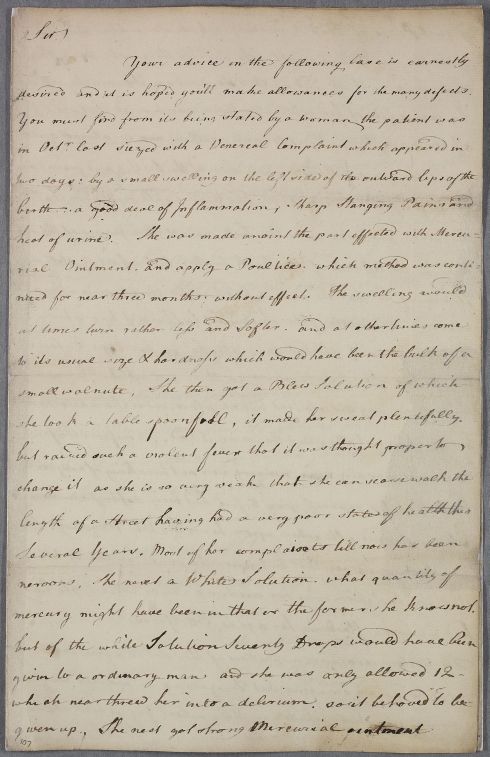 Sir
Your advice in the following Case is earnestly
desired and it is hoped you'll make allowances for the many defects
You must find from its being stated by a woman, the patient was
in Octr last siezed with a Venereal Complaint which appeared in
two days: by a small swelling on the left side of the outward lips of the
birth: a good deal of Inflammation, Sharp Stanging Pains and
heat of urine. She was made anoint the part effected with Mercu-
rial Ointment. and apply a Poultice. which method was conti-
nued for near three months. without effect. The swelling would
at times turn rather less and Softer. and at other times come
to its usual size & hardness which would have been the bulk of a
small walnute, She then got a Blew Solution of which
she took a table spoonfull, it made her sweat plentifully.
but raised such a violent fever that it was thought proper to
change it as she is so very weak that she can scarse walk the
length of a Street having had a very poor state of health this
Several Years. Most of her complaints till now has been
nervous, She next a White Solution. what quantity of
mercury might have been in that or the former she knows not.
but of the white Solution Seventy Drops would have been
given to a ordinary man and she was only allowed 12 -
which near threw her into a delirium. so it behoved to be
given up, She next got strong Mercurial ointment
107